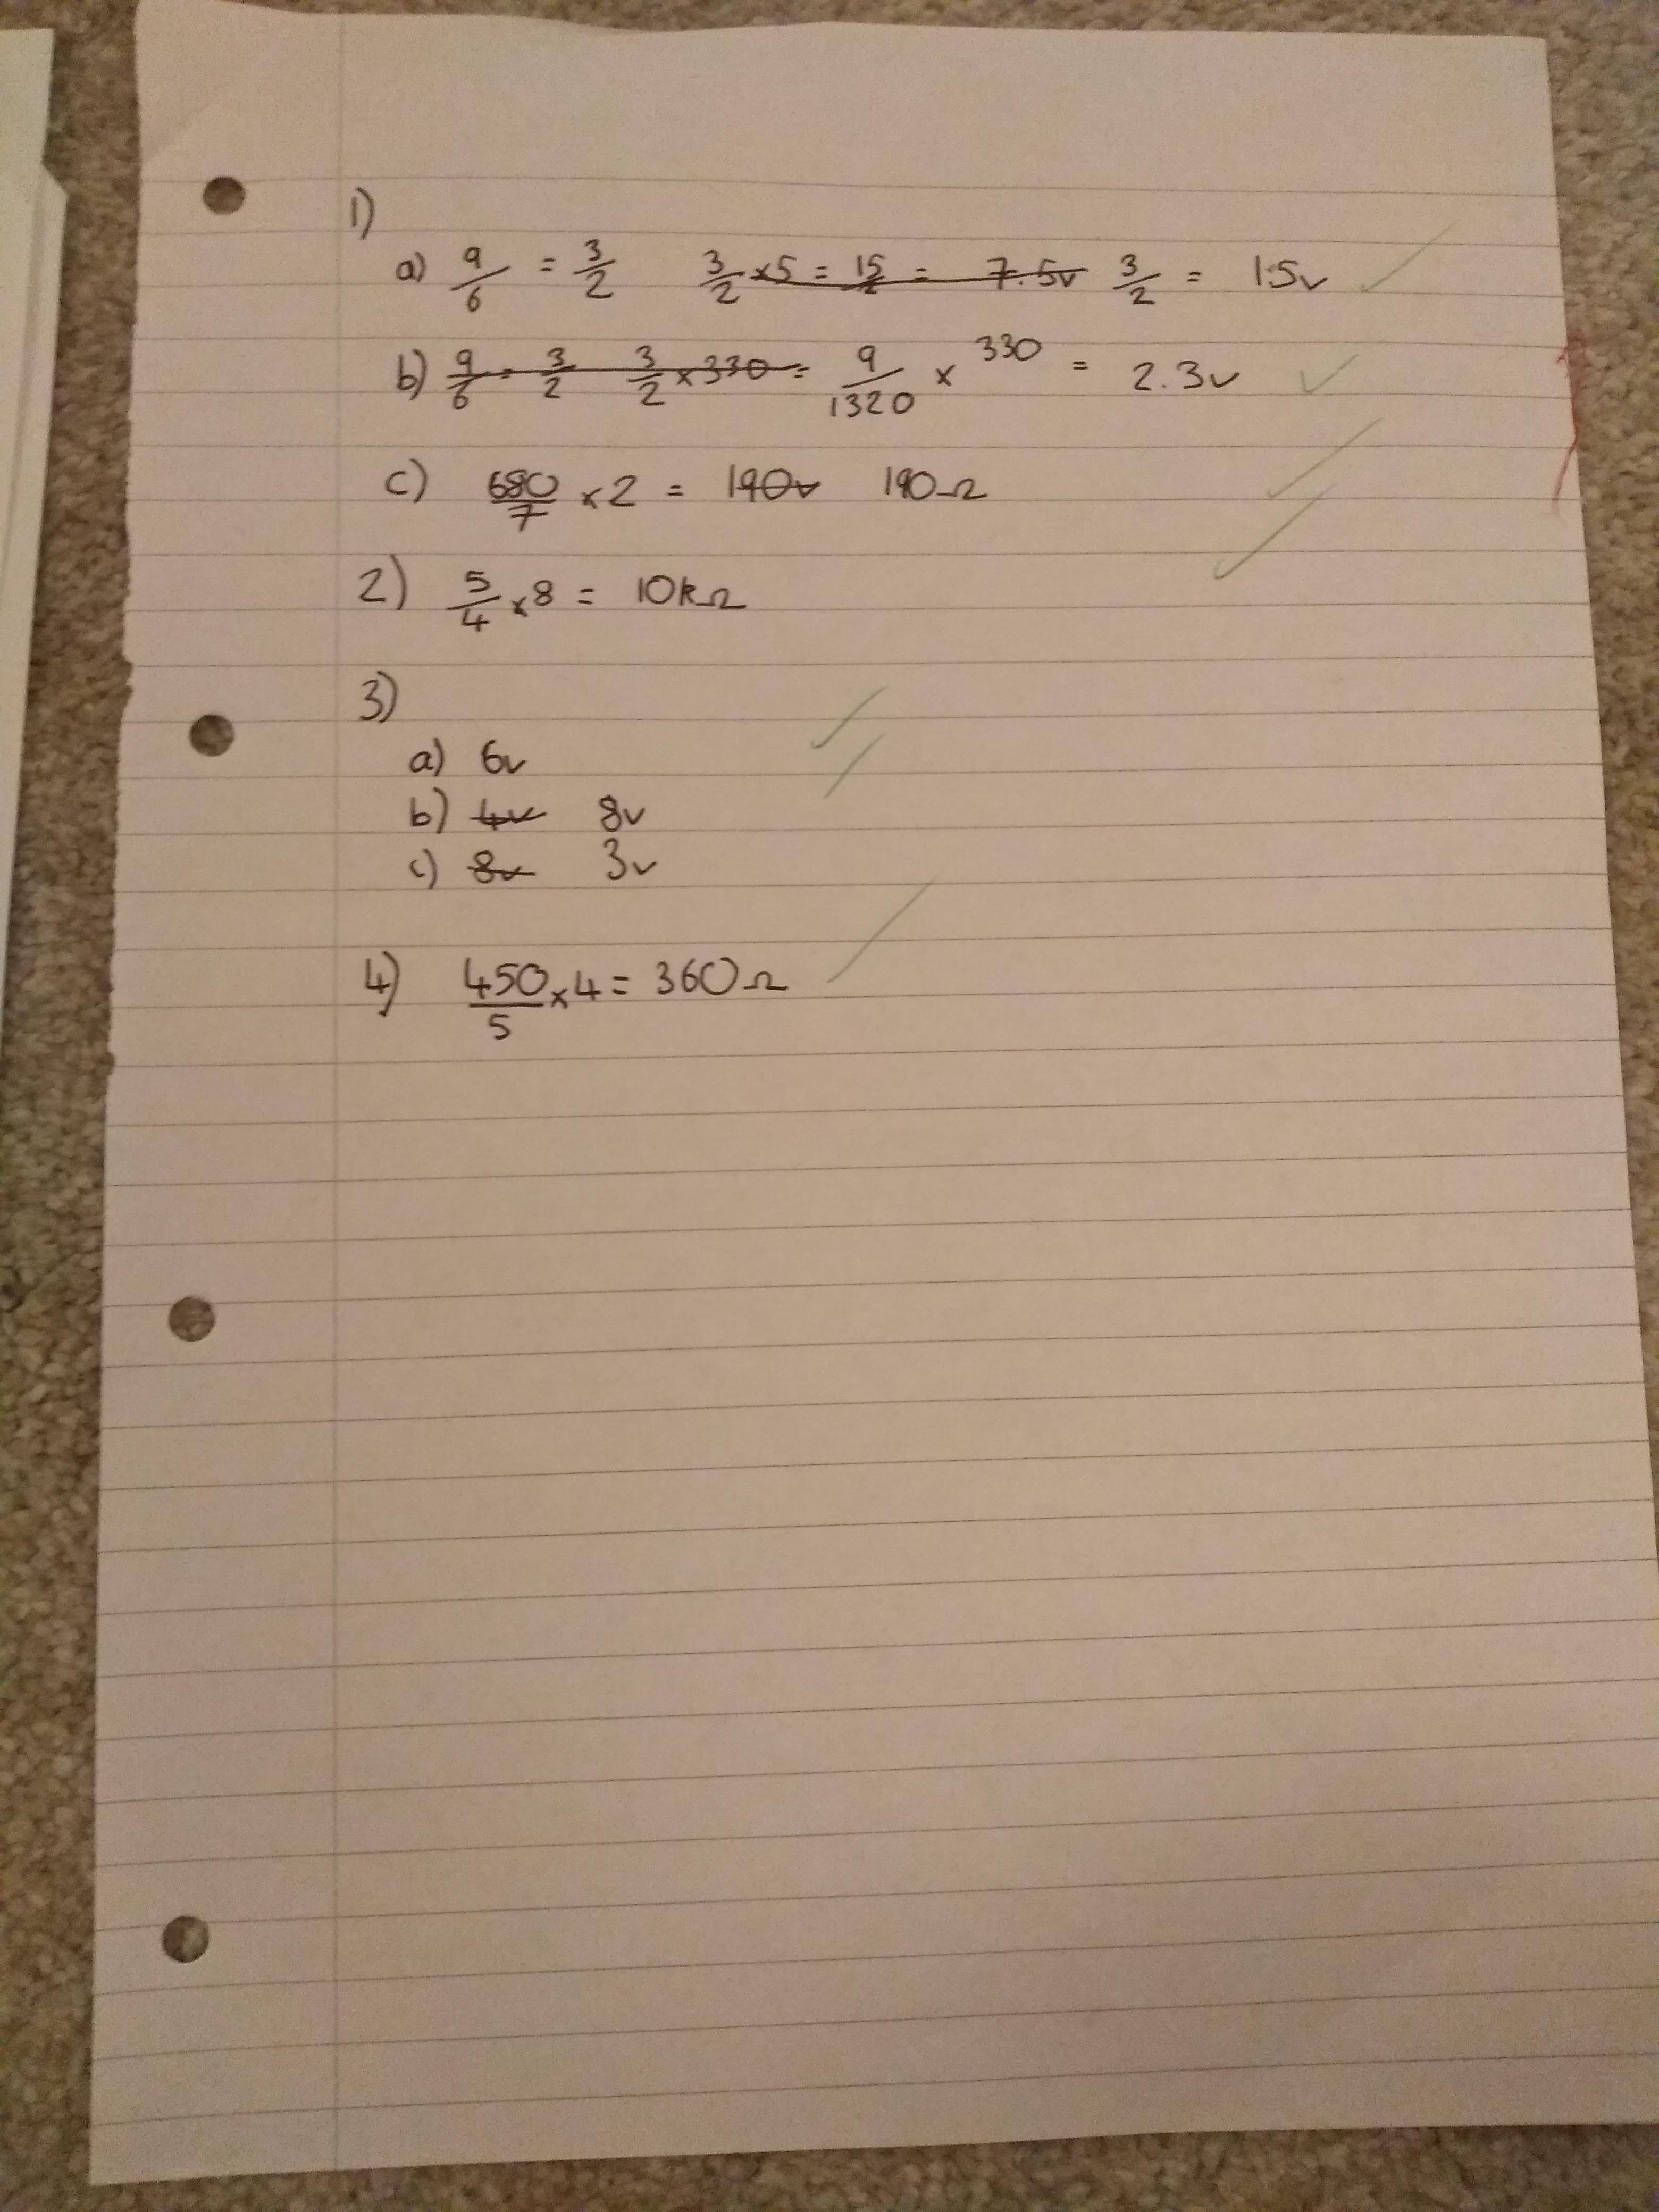 1)
a) 9/6 = 3/2 3/2 ×5 = 15/2 = 7.5v 3/2 = 1.5v ✓
b) 9/6 = 3/2 3/2 ×330 = 9/1320 × 330 = 2.3v ✓
c) 680/7 ×2 = 190v 190Ω ✓
2) 5/4 ×8 = 10kΩ ✓
3)
a) 6v ✓
b) 4v 8v
c) 8v 3v
4) 450/5 ×4 = 360Ω ✓